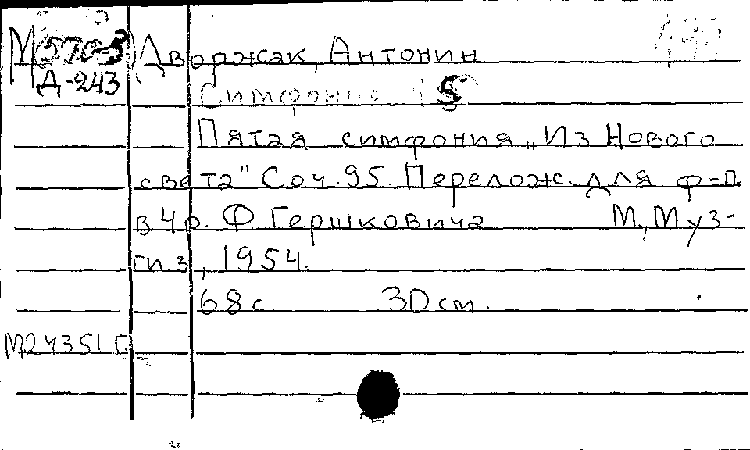 Дворжак, Антонин
Д-243
Симфония 5
Пятая симфония „Из Нового
света" Соч. 95. Перелож. для ф-п.
в 4 р. Ф. Гершковича М., Муз-
гиз, 1954.
68 с 30 см.
М24351